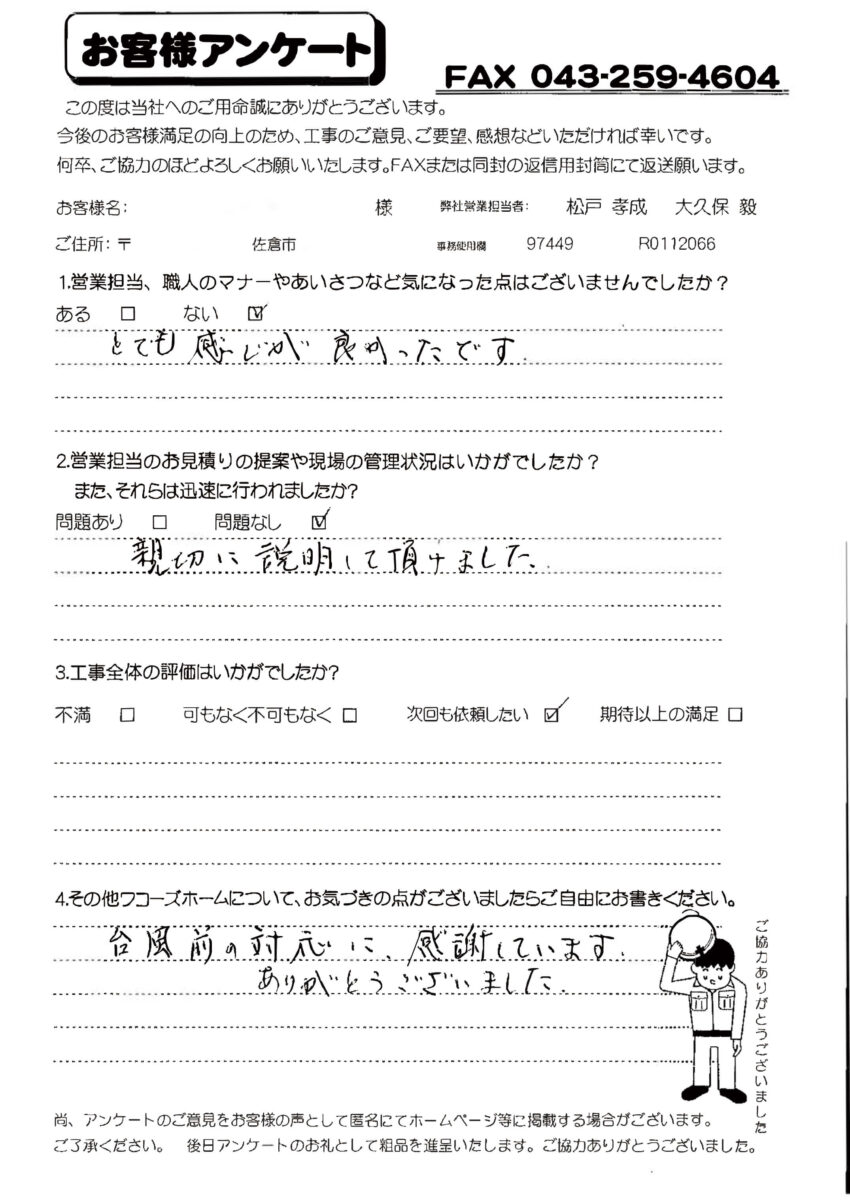 お客様アンケート
FAX 043-259-4604
この度は当社へのご用命誠にありがとうございます。
今後のお客様満足の向上のため、工事のご意見、ご要望、感想などいただければ幸いです。
何卒、ご協力のほどよろしくお願いいたします。FAXまたは同封の返信用封筒にて返送願います。
お客様名: 様 弊社営業担当者: 松戸 孝成 大久保 毅
ご住所:〒 佐倉市 事務使用欄 97449 R0112066
1.営業担当、職人のマナーやあいさつなど気になった点はございませんでしたか?
ある □ ない ☑
とても 感じが 良かったです.
2.営業担当のお見積りの提案や現場の管理状況はいかがでしたか?
また、それらは迅速に行われましたか?
問題あり □ 問題なし ☑
親切に 説明して頂けました.
3.工事全体の評価はいかがでしたか?
不満 □ 可もなく不可もなく □ 次回も依頼したい ☑ 期待以上の満足 □
4.その他ワコーズホームについて、お気づきの点がございましたらご自由にお書きください。
台風前の対応に、感謝しています.
ありがとうございました.
ご協力ありがとうございました
尚、アンケートのご意見をお客様の声として匿名にてホームページ等に掲載する場合がございます。
ご了承ください。 後日アンケートのお礼として粗品を進呈いたします。ご協力ありがとうございました。